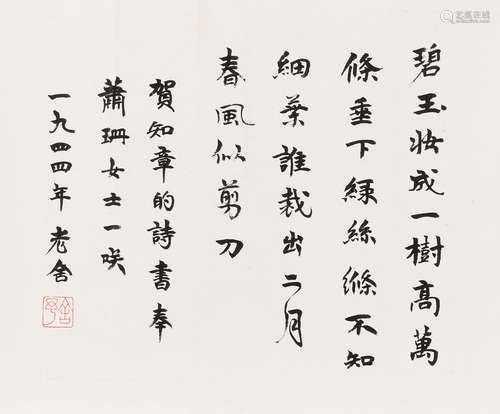 碧玉妝成一樹高萬
條垂下綠絲縧不知
細葉誰裁出二月
春風似剪刀
賀知章的詩書奉
蕭珊女士一咲
一九四四年老舍
舍予